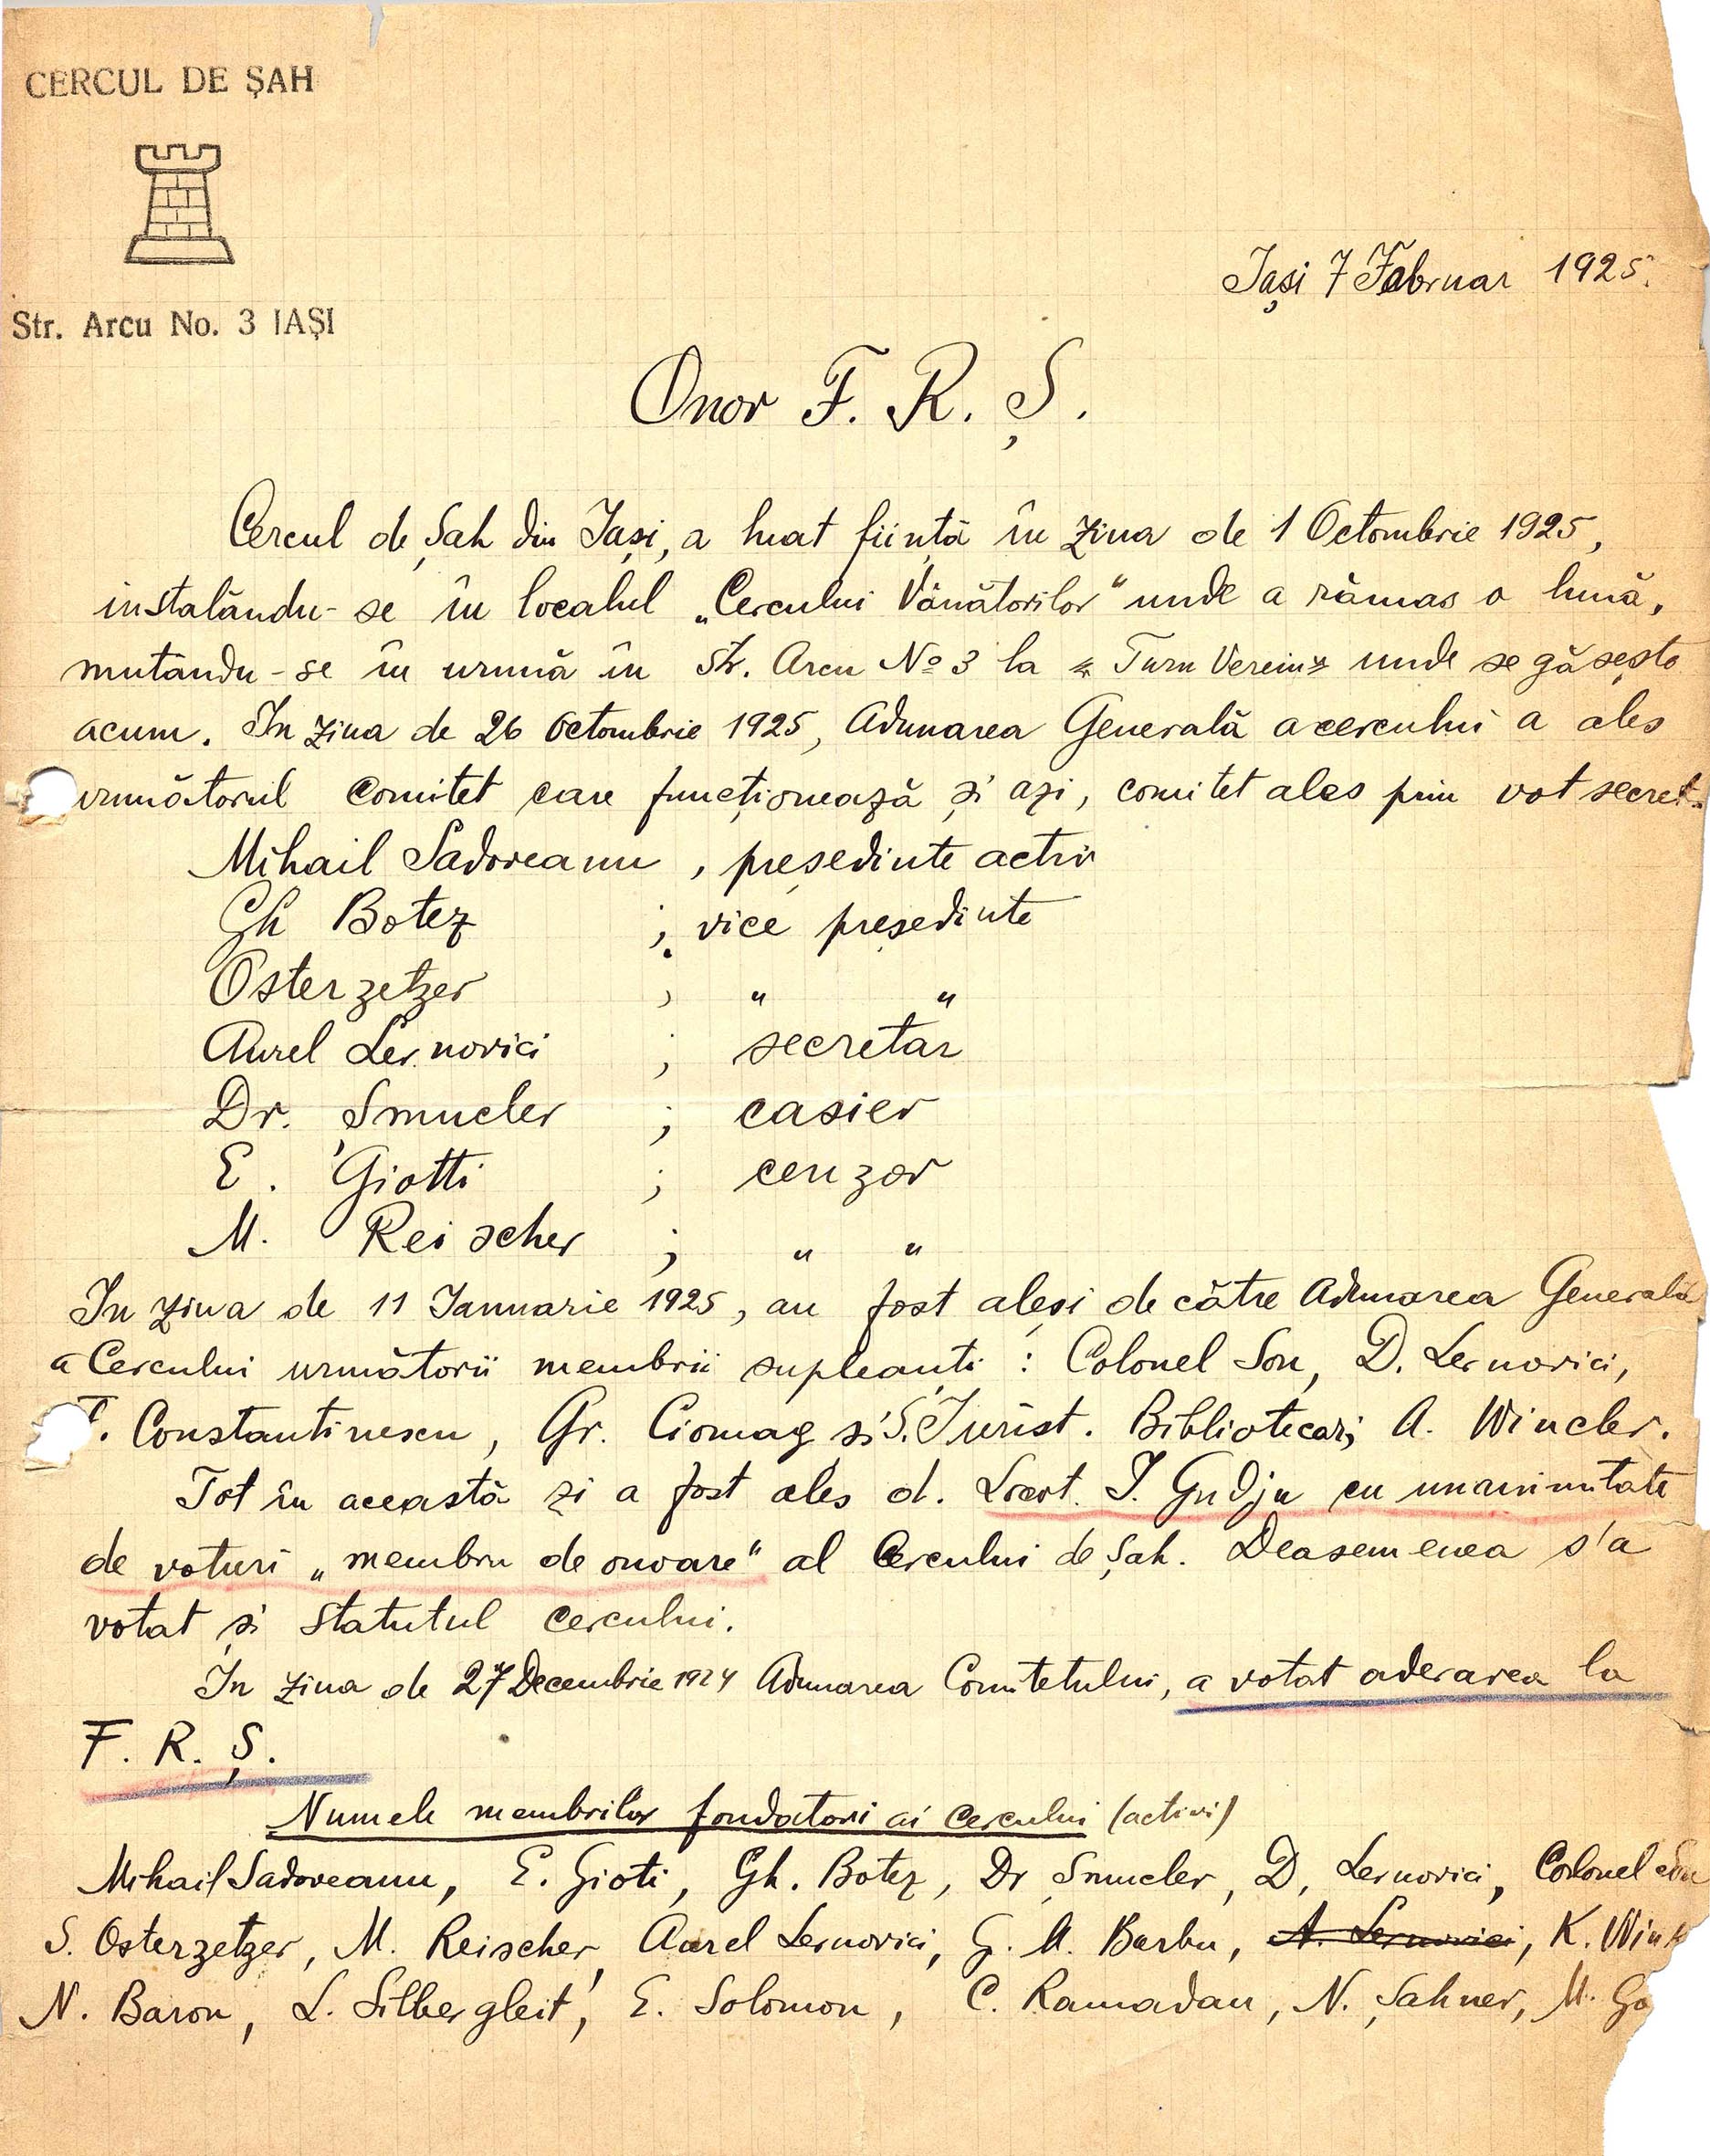 CERCUL DE ȘAH
Str. Arcu No. 3 IAȘI
Iași 7 Februar 1925.
Onor F. R. Ș.
Cercul de Șah din Iași, a luat ființă în ziua de 1 Octombrie 1925,
instalându-se în localul „Cercului Vânătorilor" unde a rămas o lună,
mutându-se în urmă în Str. Arcu No 3 la « Turn Verein» unde se găsește
acum. In ziua de 26 Octombrie 1925, Adunarea Generală a cercului a ales
următorul comitet care funcționează și azi, comitet ales prin vot secret.
Mihail Sadoveanu , președinte activ
Gh Botez ; vice președinte
Osterzetzer ; „ „
Aurel Lernovici ; secretar
Dr. Șmucler ; casier
E. Giotti ; cenzor
M. Reischer ; „ „
In ziua de 11 Ianuarie 1925, au fost aleși de către Adunarea Generală
a Cercului următorii membrii supleanți : Colonel Son, D. Lernovici,
. Constantinescu, Gr. Ciomag și S. Jurist. Bibliotecar; A. Wincler.
Tot în această zi a fost ales d. I. Gudju cu unanimitate
de voturi „membru de onoare" al Cercului de Șah. Deasemenea s'a
votat și statutul cercului.
In ziua de 27 Decembrie 1924 Adunarea Comitetului, a votat aderarea la
F. R. Ș.
Numele membrilor fondatori ai cercului (activi)
Mihail Sadoveanu, E. Gioti, Gh. Botez, Dr Șmucler, D. Lernovici, Colonel
S. Osterzetzer, M. Reischer, Aurel Lernovici, G. M. Barbu, A. Lernovici, K. Wink
N. Baron, L. Silbergleit, E. Solomon, C. Ramadan, N. Șahner, M. Go